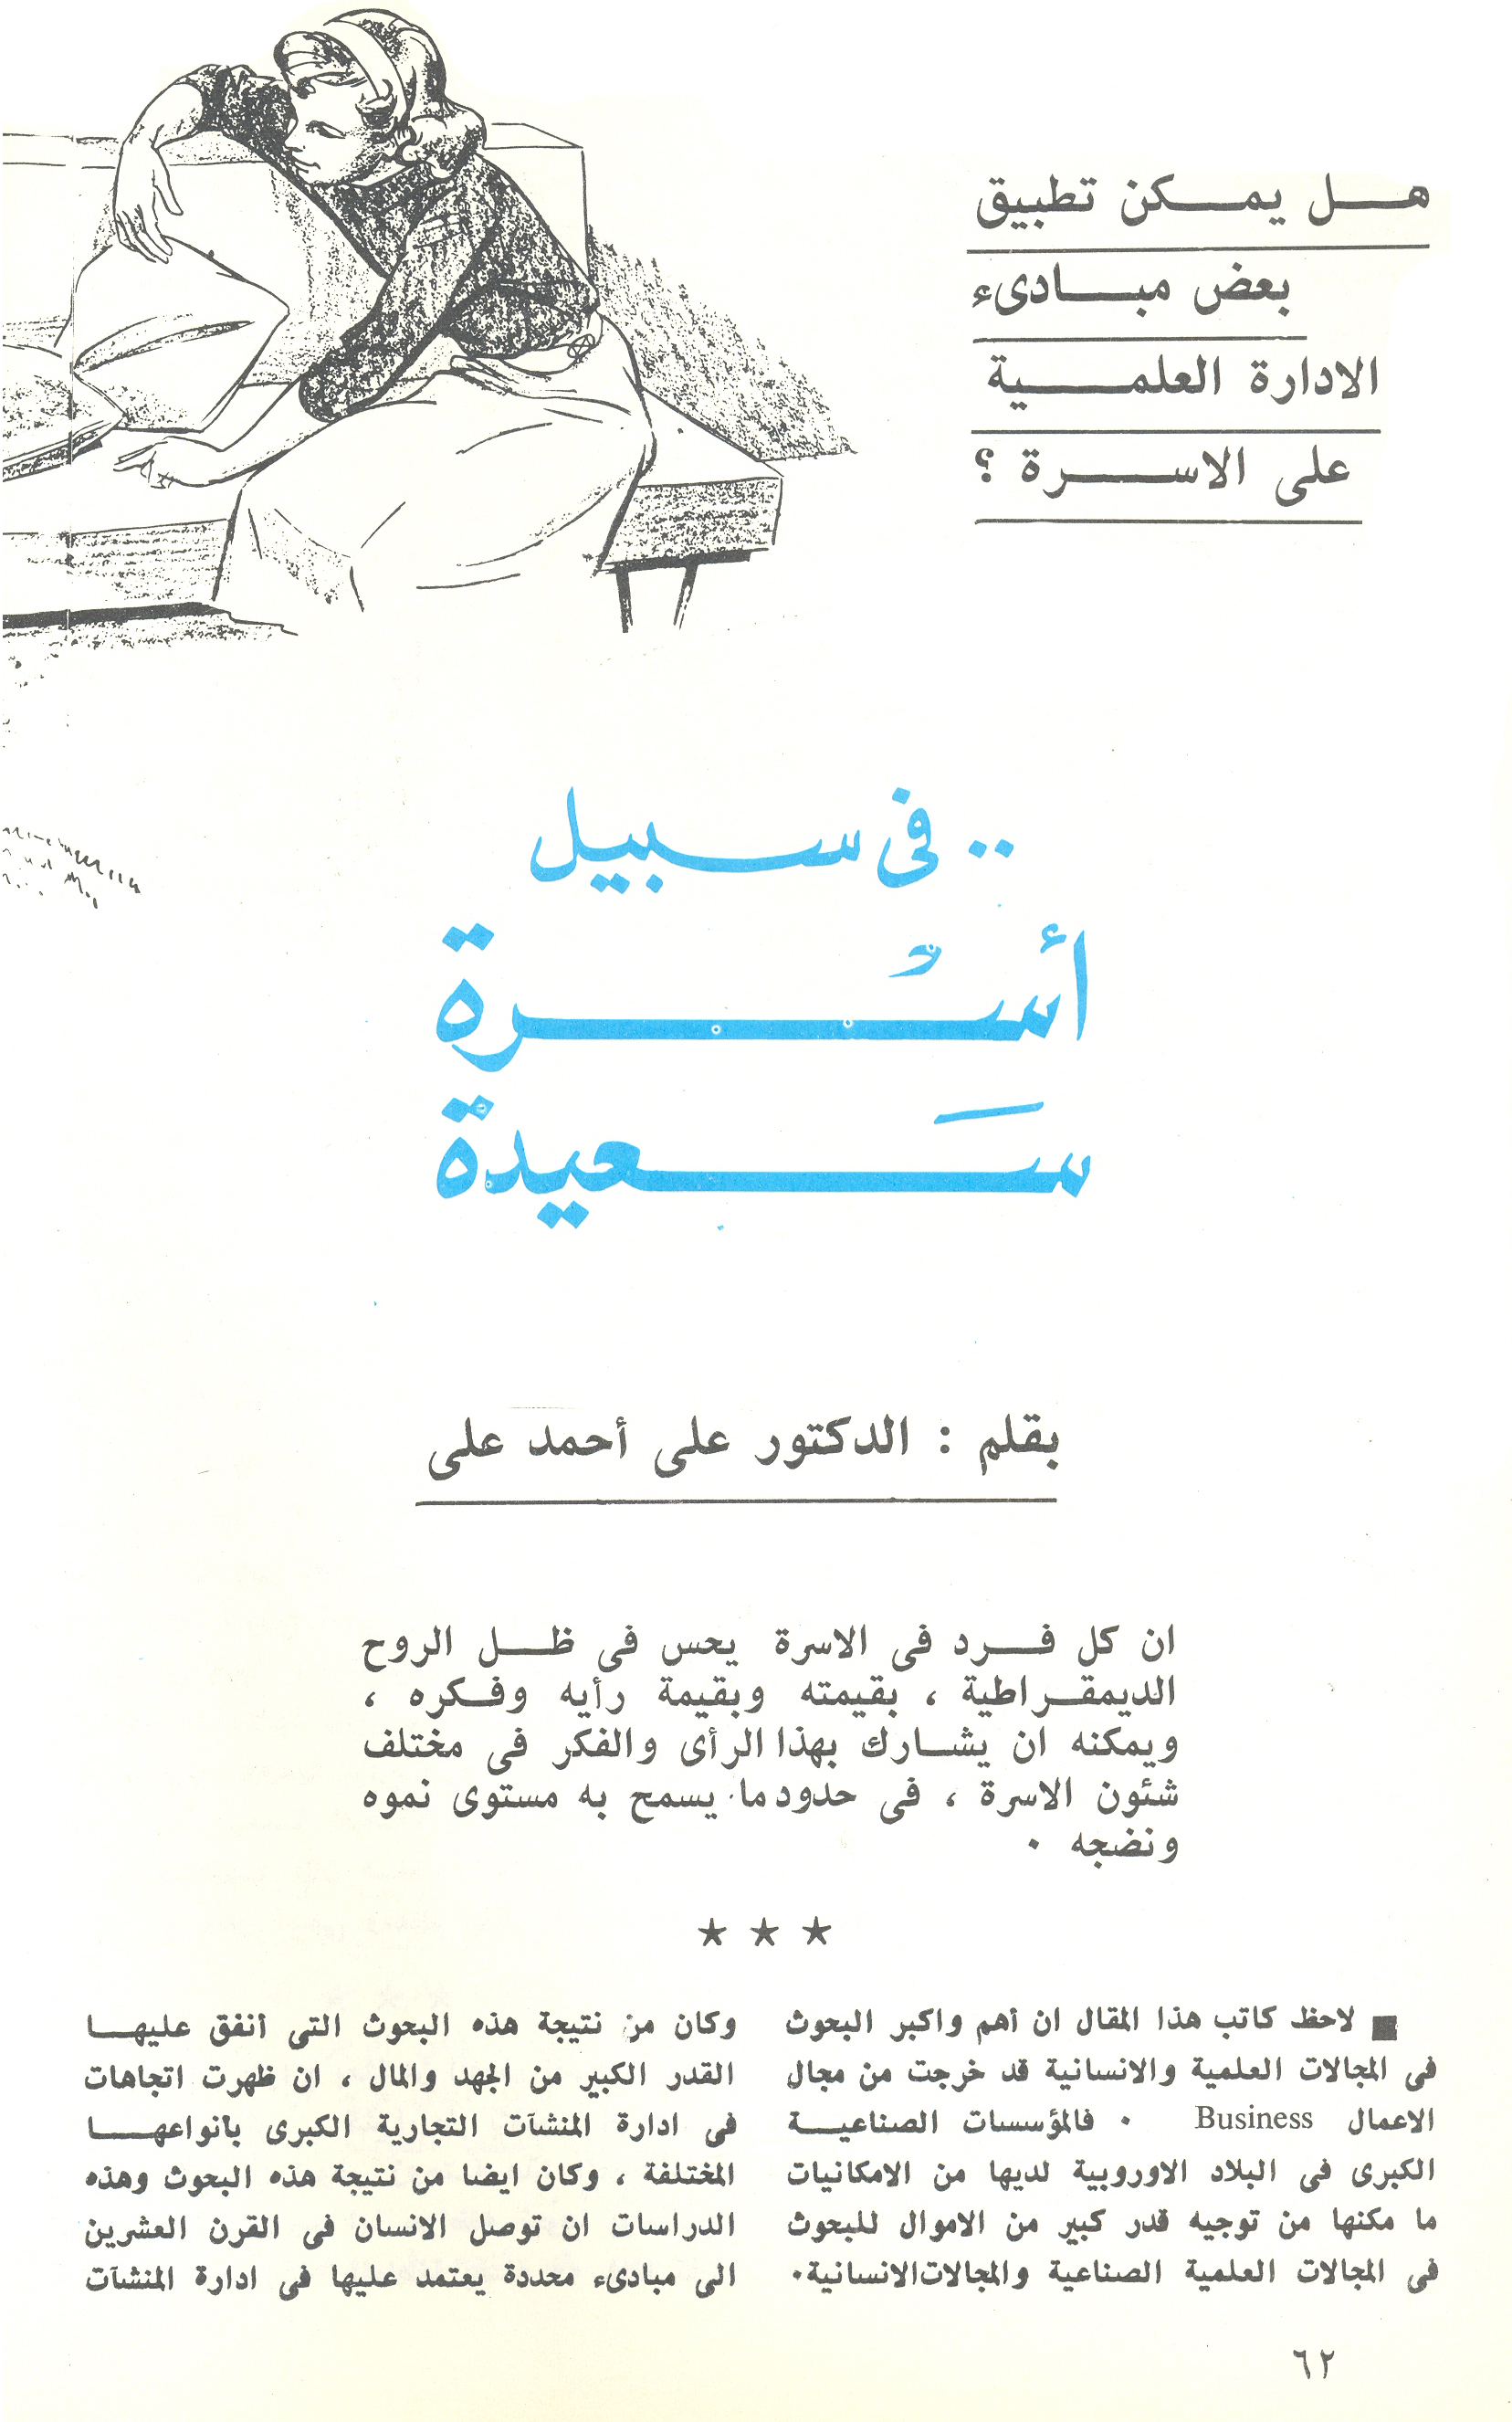 هل يمكن تطبيق
بعض مبادىء
الادارة العلمية
على الاسرة ؟
.. فى سبيل
أسْرة
سَعيدة
بقلم : الدكتور على أحمد على
ان كل فرد فى الاسرة يحس فى ظل الروح
الديمقراطية ، بقيمته وبقيمة رأيه وفكره ،
ويمكنه ان يشارك بهذا الرأى والفكر فى مختلف
شئون الاسرة ، فى حدود ما يسمح به مستوى نموه
ونضجه ٠
★ ★ ★
■ لاحظ كاتب هذا المقال ان أهم واكبر البحوث
فى المجالات العلمية والانسانية قد خرجت من مجال
الاعمال Business ٠ فالمؤسسات الصناعية
الكبرى فى البلاد الاوروبية لديها من الامكانيات
ما مكنها من توجيه قدر كبير من الاموال للبحوث
فى المجالات العلمية الصناعية والمجالات الانسانية٠
وكان من نتيجة هذه البحوث التى أنفق عليها
القدر الكبير من الجهد والمال ، ان ظهرت اتجاهات
فى ادارة المنشآت التجارية الكبرى بأنواعها
المختلفة ، وكان ايضا من نتيجة هذه البحوث وهذه
الدراسات ان توصل الانسان فى القرن العشرين
الى مبادىء محددة يعتمد عليها فى ادارة المنشآت
٦٢